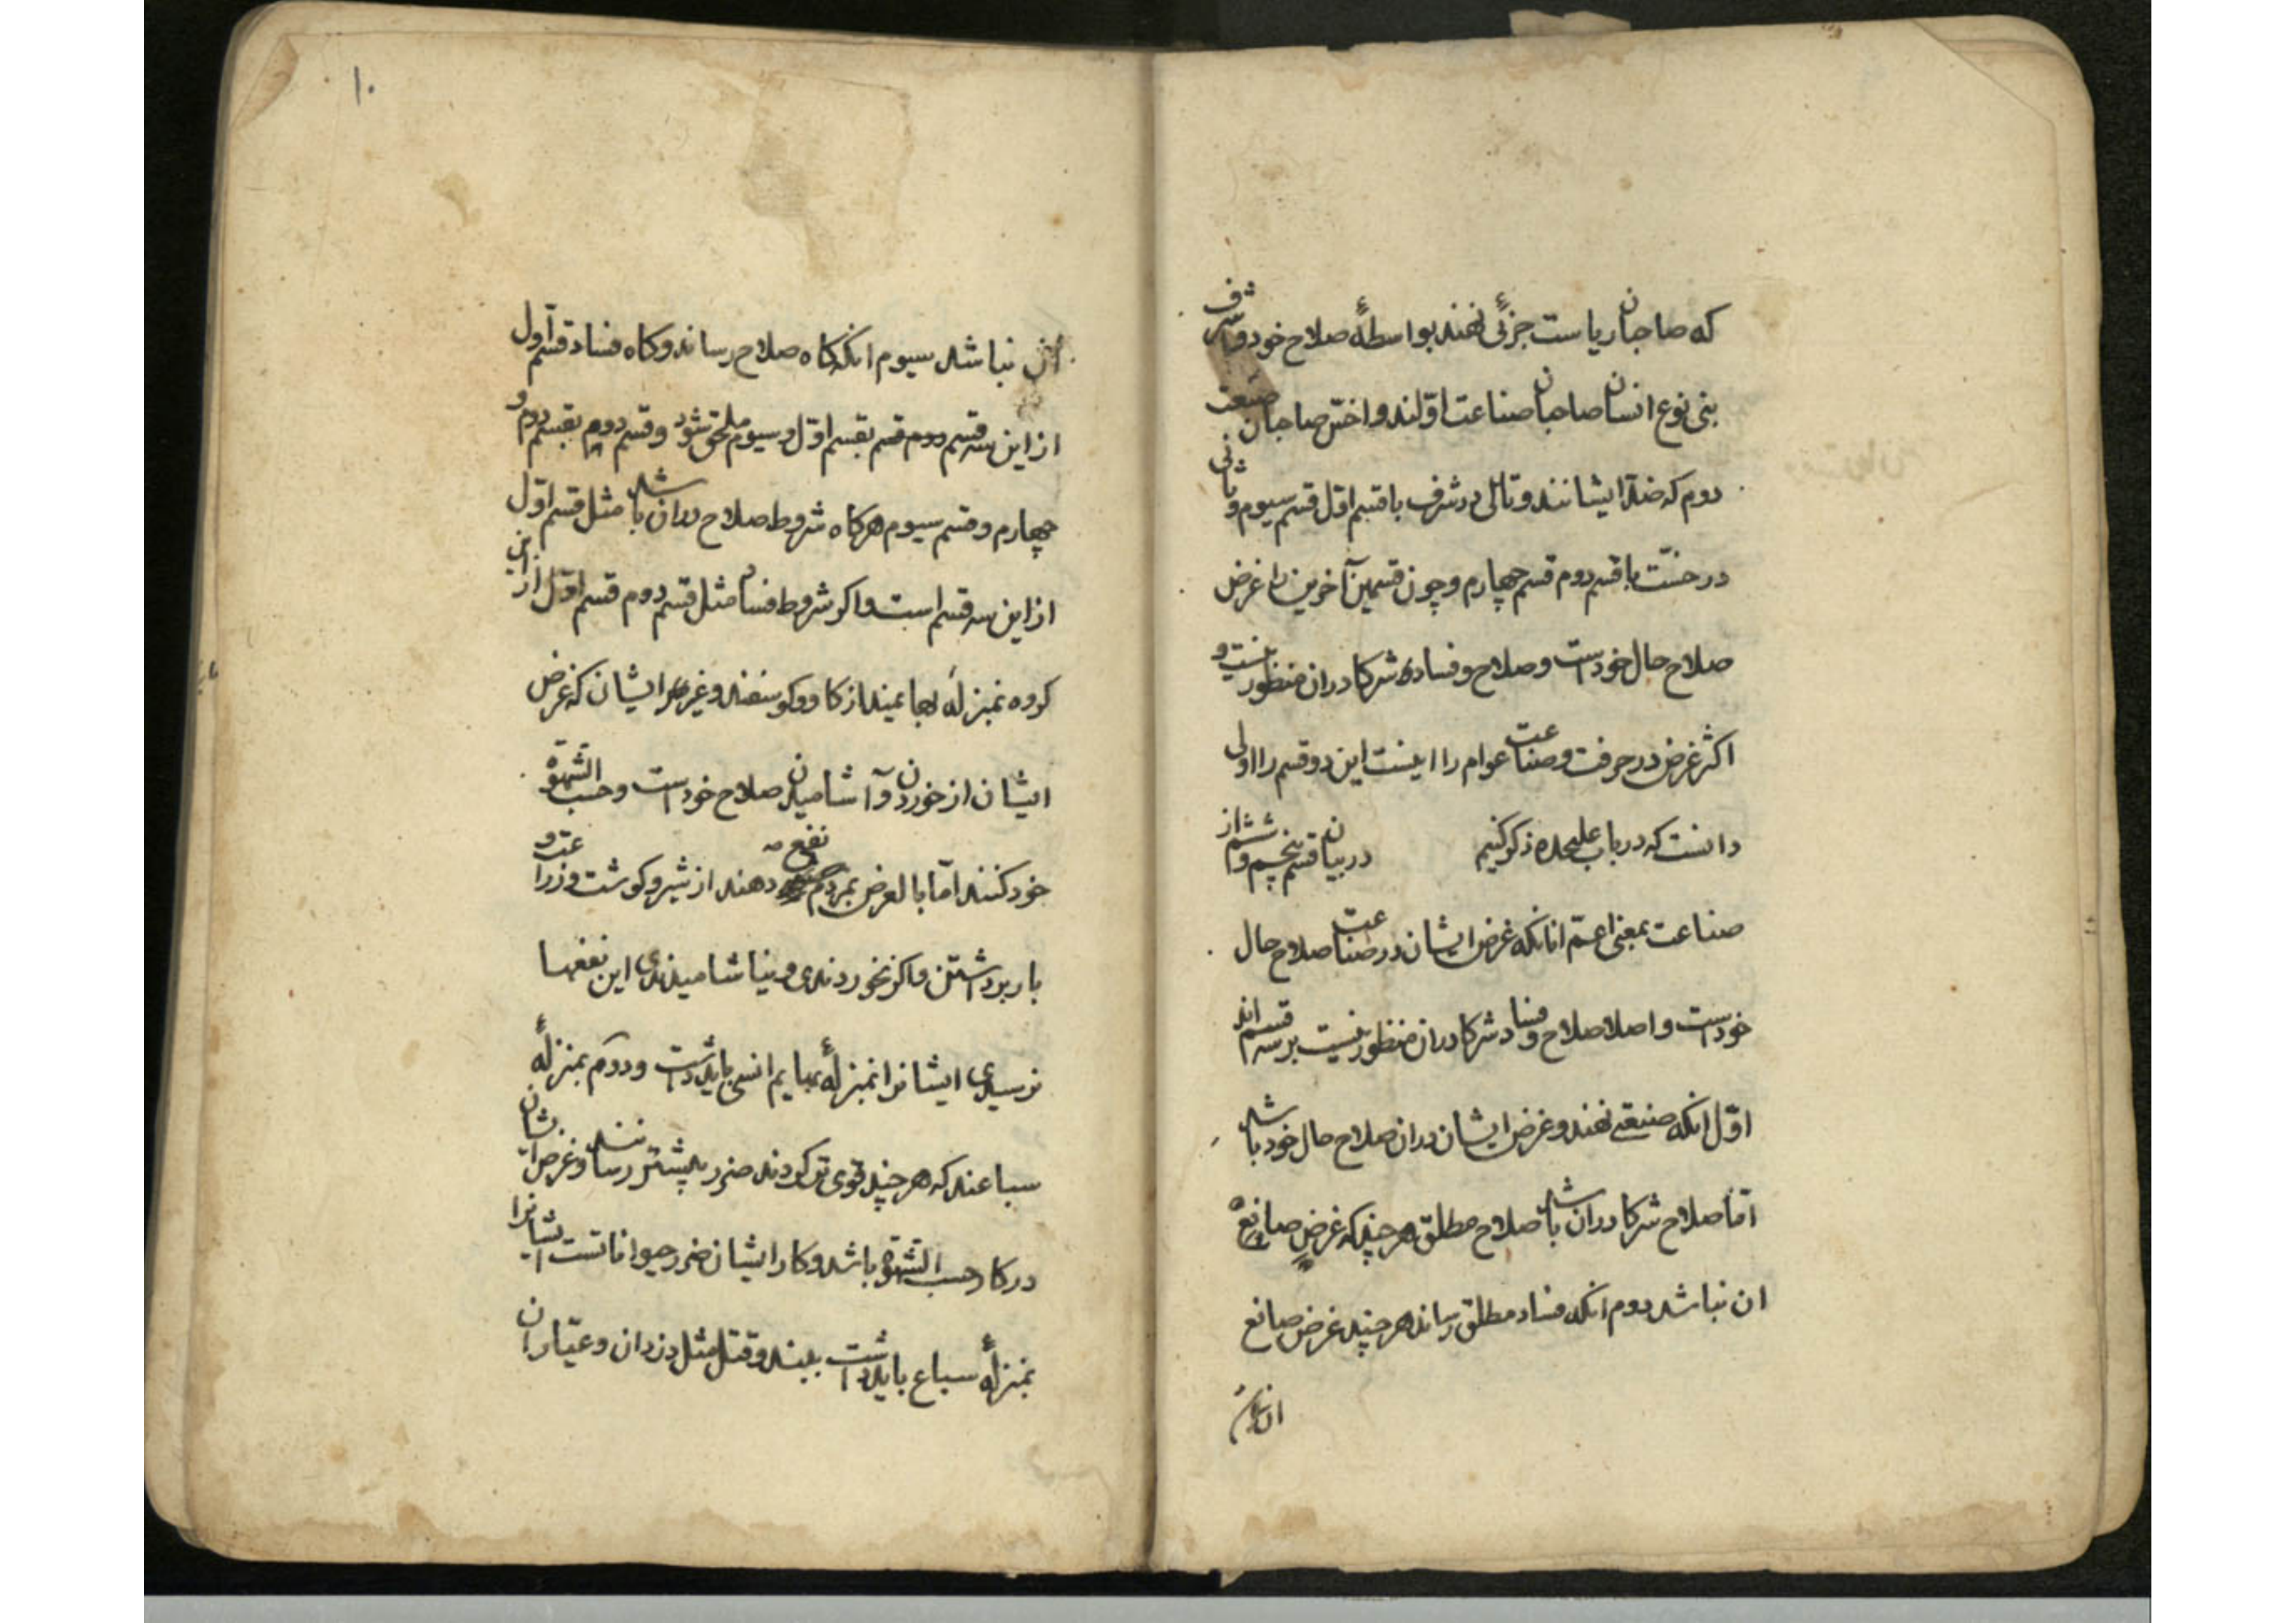 که صاحبان ریاست جزئی نهند بواسطهٔ صلاح خود و شرف
بنی نوع انسان صاحبان صناعت اولند و اخس صاحبان صنعت
دوم که ضد ایشانند و تالی در شرف با قسم اول قسم سیوم و ثانی
در خست با قسم دوم قسم چهارم و چون قسمین آخرین را غرض
صلاح حال خودست و صلاح و فساد شرکا در ان منظور نیست و
اکثر غرض در حرفت و صناعت عوام را اینست این دو قسم را اولی
دانست که در باب علیحده ذکر کنیم در بیان قسم پنجم و ششم از
صناعت بمعنی اعم انانکه غرض ایشان در صناعت صلاح حال
خودست و اصلا صلاح و فساد شرکا در ان منظور نیست بر سه قسم اند
اوّل انکه صنیعتی نهند و غرض ایشان در ان صلاح حال خود باشد
امّا صلاح شرکا در ان باشد صلاح مطلق هر چند که غرض صانع
ان نباشد دوم انکه فساد مطلق رساند هر چند غرض صانع
۱۰
ان نباشد سیوم انکه کاه صلاح رساند و کاه فساد قسم اول
از این سه قسم دوم قسم بقسم اوّل و سیوم ملحق شود و قسم دوم بقسم دوم و
چهارم و قسم سیوم هرکاه شروط صلاح در ان باشد مثل قسم اوّل
از این سه قسم است و اکر شروط فساد مثل قسم دوم قسم اوّل از این
کروه بمنزلهٔ بهایمند از کاو و کوسفند و غیرها ایشان که غرض
ایشان از خوردن و آشامیدن صلاح خودست و حسب الشهوة
خود کنند امّا بالعرض بمردم نفع دهند از شیر و کوشت و زراعت و
بار برداشتن و اکر نخوردندی و نیاشامیدندی این نفعها
نرسیدی ایشانرا بمنزلهٔ بهایم انسی باید داشت و دوم بمنزلهٔ
سباعند که هر چند قوی تر کردند ضرر بیشتر رسانند و غرض ایشان
در کار حسب الشهوة باشد و کار ایشان ضرر حیواناتست ایشانرا
بمنزلهٔ سباع باید داشت ببند و قتل مثل دزدان و عیّاران